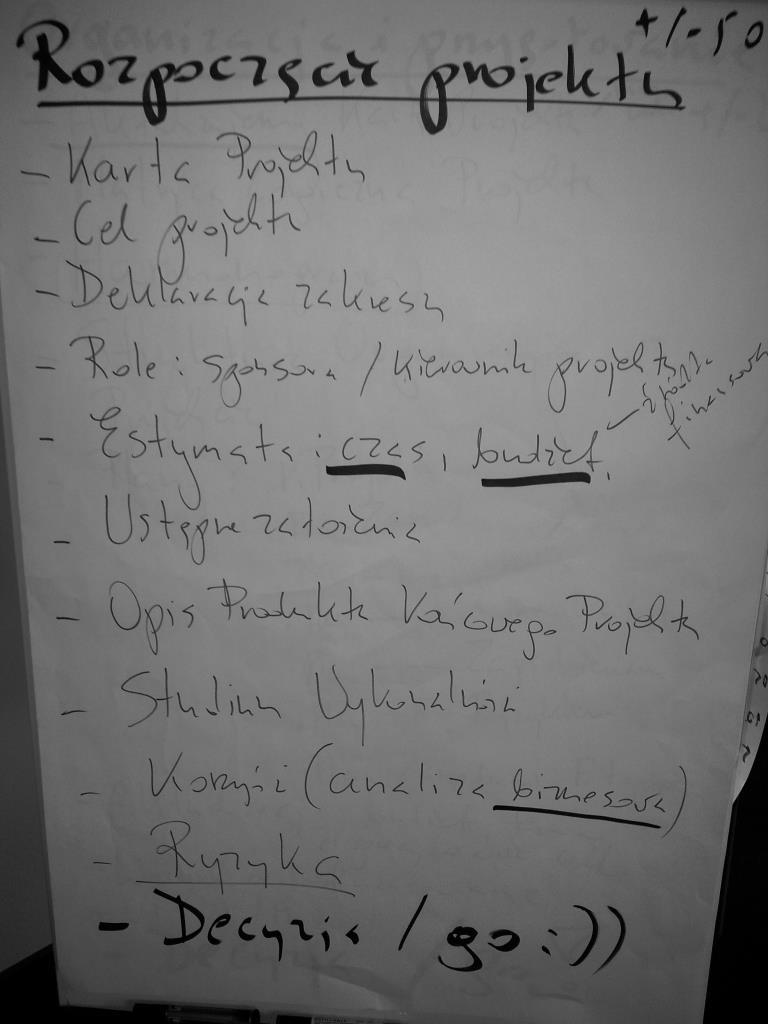 +/- 50
Rozpoczęcie projektu
- Karta Projektu
- Cel projektu
- Deklaracja zakresu
- Role: sponsora / kierownik projektu
- Estymata: czas, budżet,
źródła
finansowania
- Wstępne założenia
- Opis Produktu Końcowego Projektu
- Studium Wykonalności
- Korzyści (analiza biznesowa)
- Ryzyka
- Decyzja / go :))